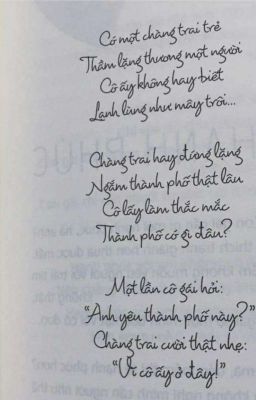 Có một chàng trai trẻ
Thầm lặng thương một người
Cô ấy không hay biết
Lạnh lùng như mây trôi...
Chàng trai hay đứng lặng
Ngắm thành phố thật lâu
Cô lấy làm thắc mắc
Thành phố có gì đâu?
Một lần cô gái hỏi:
"Anh yêu thành phố này?"
Chàng trai cười thật nhẹ:
"Vì cô ấy ở đây!"